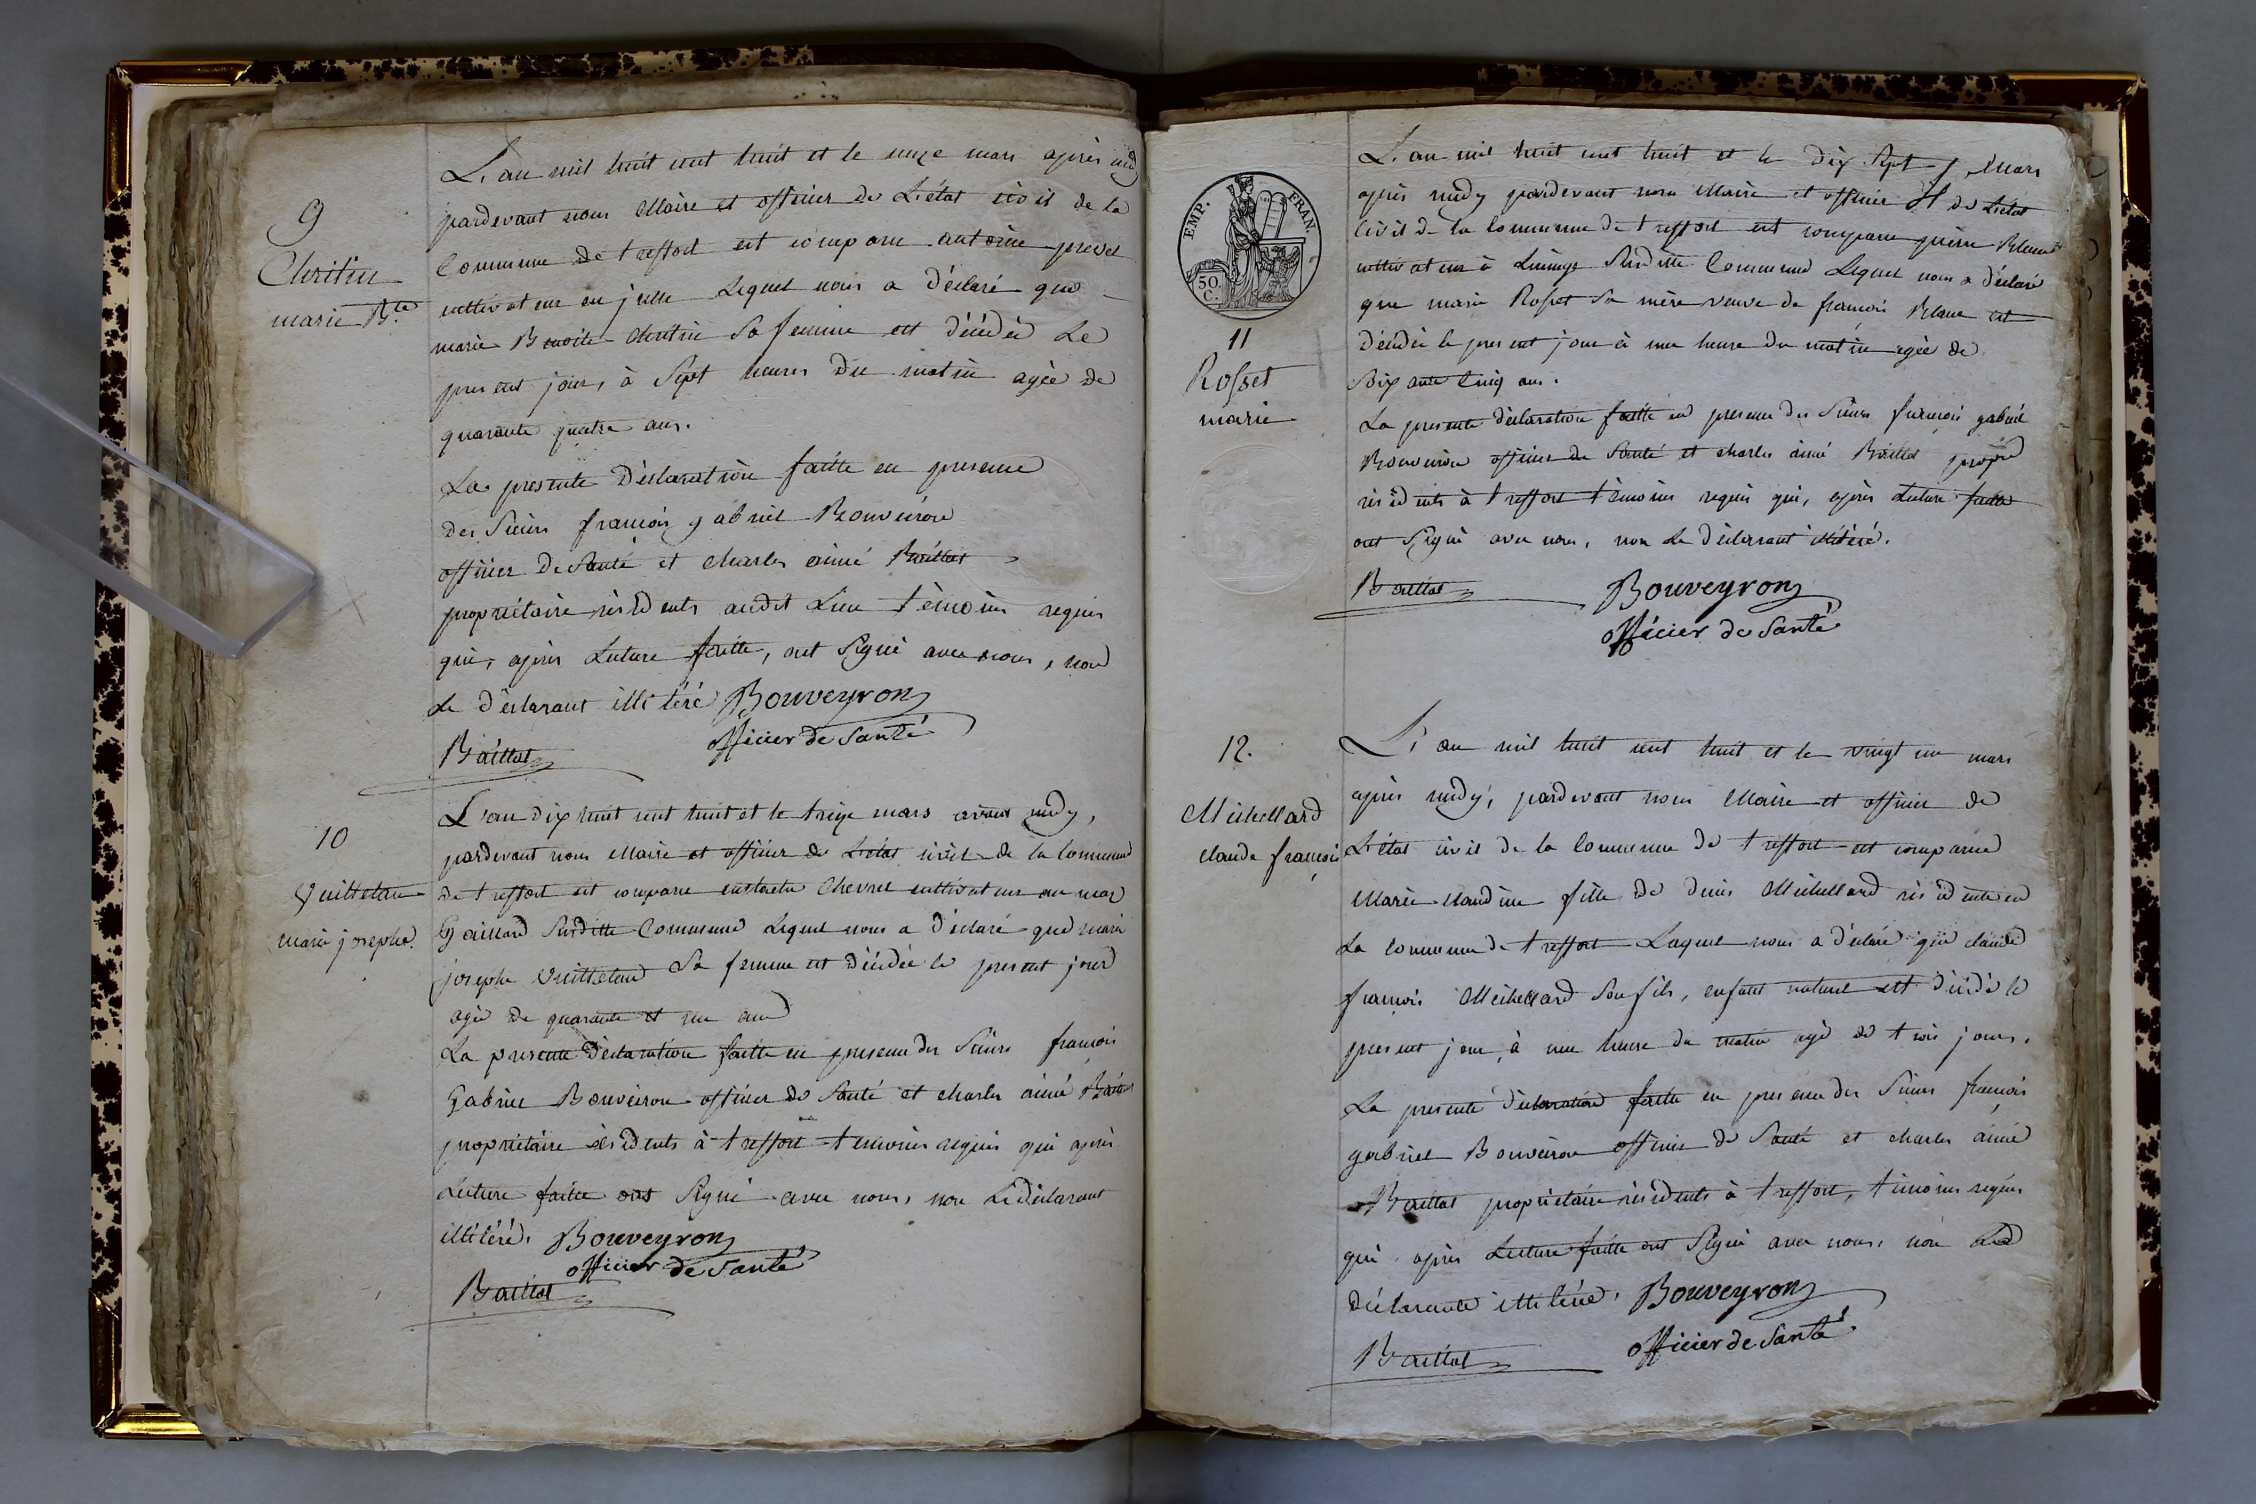 9
Chritin
marie B.te
L'an mil huit cent huit et le onze mars après midy
pardevant nous Maire et officier de L'état civil de la
Commune de treffort est comparu antoine prevel
cultivateur en julle Lequel nous a déclaré que
marie Benoite Chritin Sa femme est décédée Le
present jour, à Sept heures du matin agée de
quarante quatre ans.
La presente déclaration faitte en presence
des Sieurs françois gabriel Bouveiron
officier de Santé et charles aimé Baillat
propriétaire résidents audit Lieu témoins requis
qui, après Lecture faitte, ont Signé avec nous, non
Le déclarant illitéré Bouveyron
officier de Santé
Baillat
10
Vuilletan
marie josephe.
L'an dix huit cent huit et le treize mars avant midy,
pardevant nous Maire et officier de L'état civil de la Commune
de treffort est comparu eustache Chevret cultivateur au mas
Gaillard Susditte Commune Lequel nous a déclaré que marie
josephe Vuilletan Sa femme est décédée le present jour
agée de quarante et un ans
La presente déclaration faitte en presence des Sieurs françois
Gabriel Bouveiron officier de Santé et charles aimé Baillat
propriétaire résidents à treffort témoins requis qui après
Lecture faitte ont Signé avec nous, non Le déclarant
illitéré. Bouveyron
officier de Santé
Baillat
EMP. FRAN.
50 C.
11
Rosset
marie
L'an mil huit cent huit et le dix Sept Mars
après midy pardevant nous Maire et officier de L'état
Civil de la Commune de treffort est comparu pierre Blanc
cultivateur à Susditte Commune Lequel nous a déclaré
que marie Rosset Sa mère veuve de françois Blanc est
décédée le present jour à une heure du matin agée de
Soixante Cinq ans.
La presente déclaration faitte en presence des Sieurs françois gabriel
Bouveiron officier de Santé et charles aimé Baillat propre
résidents à treffort témoins requis qui, après Lecture faitte
ont Signé avec nous, non Le déclarant illitéré.
Baillat Bouveyron
officier de Santé
12.
Michellard
claude françois
L'an mil huit cent huit et le vingt un mars
après midy, pardevant nous Maire et officier de
L'état civil de la Commune de treffort est comparue
Marie Claudine fille de denis Michellard résidente en
La commune de treffort Laquel nous a déclaré que claude
françois Michellard Son fils, enfant naturel est décédé le
present jour, à une heure du matin agé de trois jours.
La presente déclaration faitte en presence des Sieurs françois
gabriel Bouveiron officier de Santé et charles aimé
Baillat propriétaire résidents à treffort, témoins requis
qui après Lecture faitte ont Signé avec nous, non La
déclarante illitérée. Bouveyron
officier de Santé
Baillat